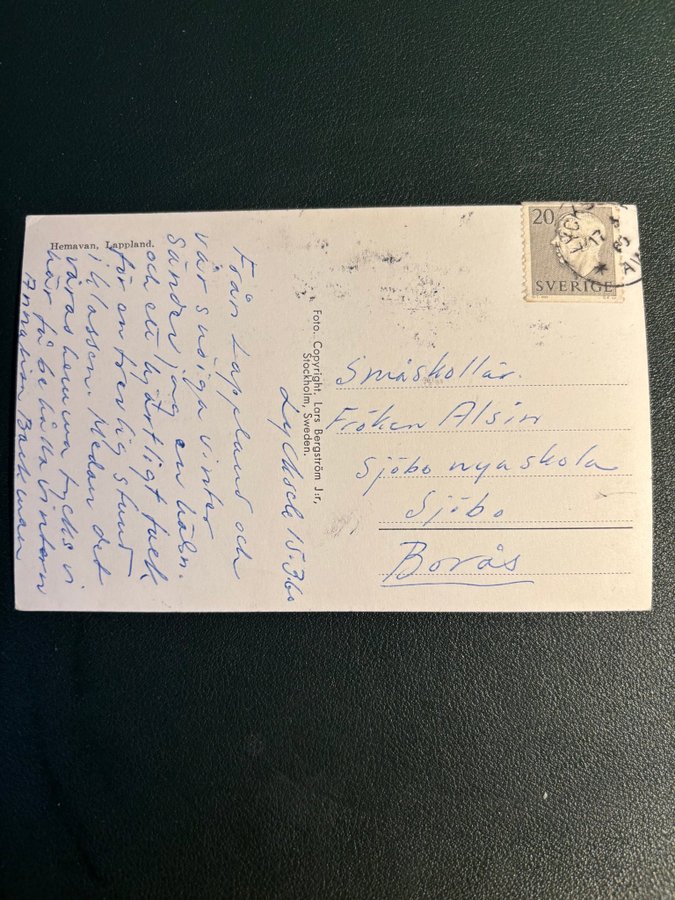 Hemavan, Lappland.
Lycksele 15.3.60
Från Lappland och
vår snöiga vinter
sänder jag en hälsn.
och ett hjärtligt tack
för en trevlig stund
i klassen. Medan det
våras hemma tycks vi
här få behålla vintern
Backman
Foto. Copyright, Lars Bergström J:r,
Stockholm, Sweden.
20
SVERIGE
Småskollär.
Fröken Alsin
Sjöbo nya skola
Sjöbo
Borås